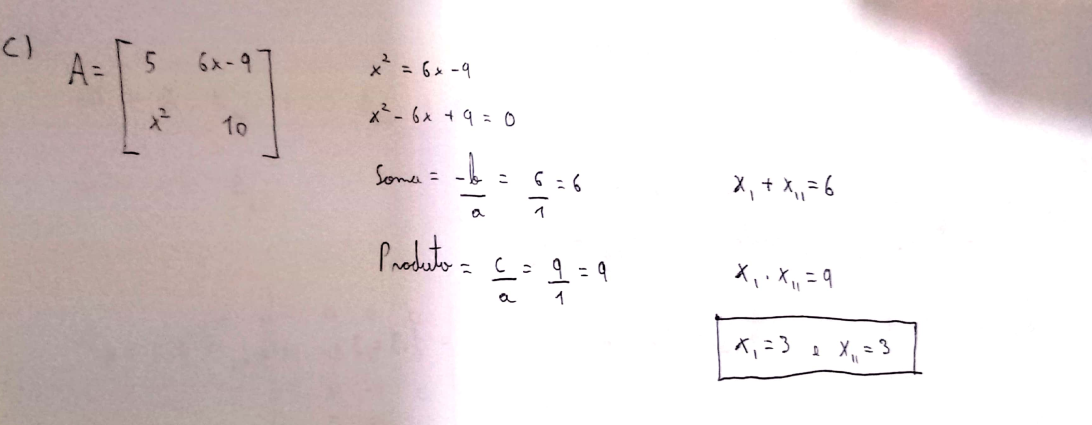 c) A = [ 5 6x-9
x² 10 ]
x² = 6x - 9
x² - 6x + 9 = 0
Soma = -b/a = 6/1 = 6
x₁ + x₁₁ = 6
Produto = c/a = 9/1 = 9
x₁ . x₁₁ = 9
x₁ = 3 e x₁₁ = 3